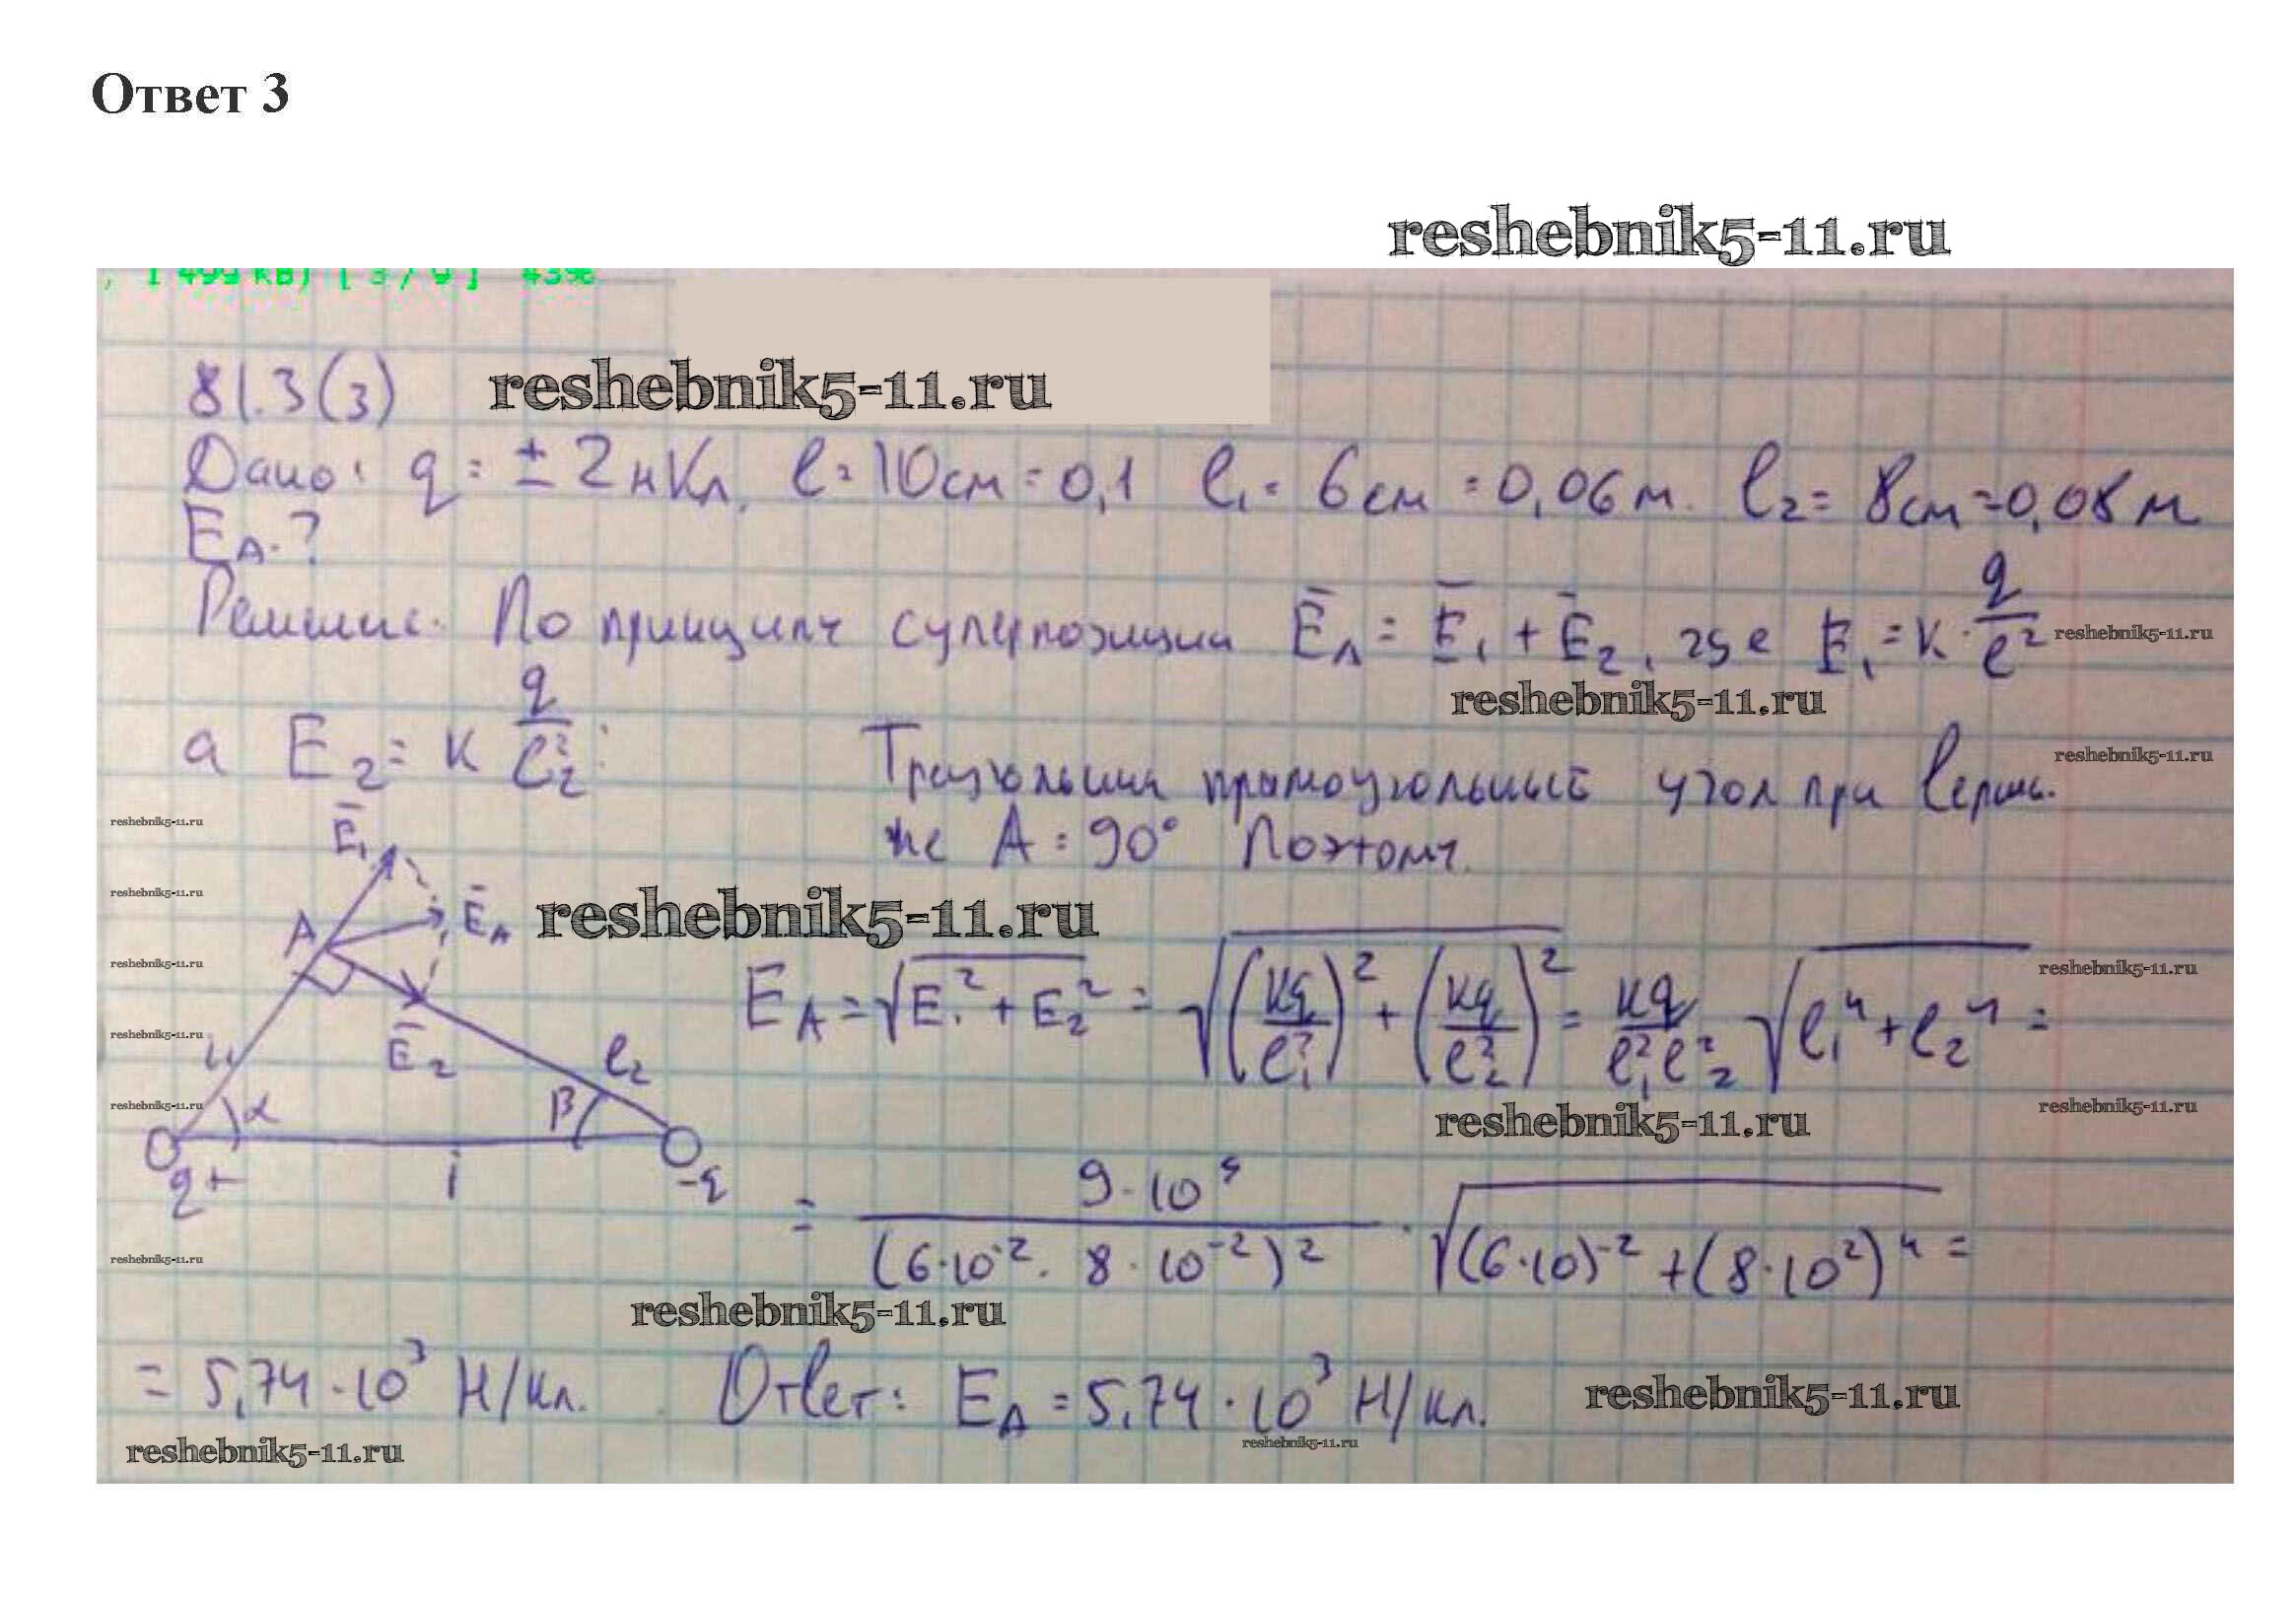 Ответ 3
reshebnik5-11.ru
, 1 499 KB) [ 3 / 9 ] 43%
81.3(3) reshebnik5-11.ru
Дано: q = ± 2 нКл, l = 10 см = 0,1 l₁ = 6 см = 0,06 м. l₂ = 8 см = 0,08 м
E_A - ?
Решение. По принципу суперпозиции Ē_A = Ē₁ + Ē₂, где E₁ = k · q/l² reshebnik5-11.ru
reshebnik5-11.ru
а E₂ = k q/l₂²: Треугольник прямоугольный угол при верши- reshebnik5-11.ru
reshebnik5-11.ru
не A = 90° Поэтому.
Ē₁
reshebnik5-11.ru
A Ē_A reshebnik5-11.ru
reshebnik5-11.ru reshebnik5-11.ru
E_A = √(E₁² + E₂²) = √((kq/l₁²)² + (kq/l₂²)²) = kq/(l₁² l₂²) √(l₁⁴ + l₂⁴) =
reshebnik5-11.ru
Ē₂ l₂
reshebnik5-11.ru α β reshebnik5-11.ru reshebnik5-11.ru
q+ l -q
= 9·10⁹/(6·10⁻² · 8·10⁻²)² · √((6·10)⁻² + (8·10²)⁴) =
reshebnik5-11.ru
reshebnik5-11.ru
= 5,74·10³ Н/Кл. Ответ: E_A = 5,74·10³ Н/Кл. reshebnik5-11.ru
reshebnik5-11.ru reshebnik5-11.ru